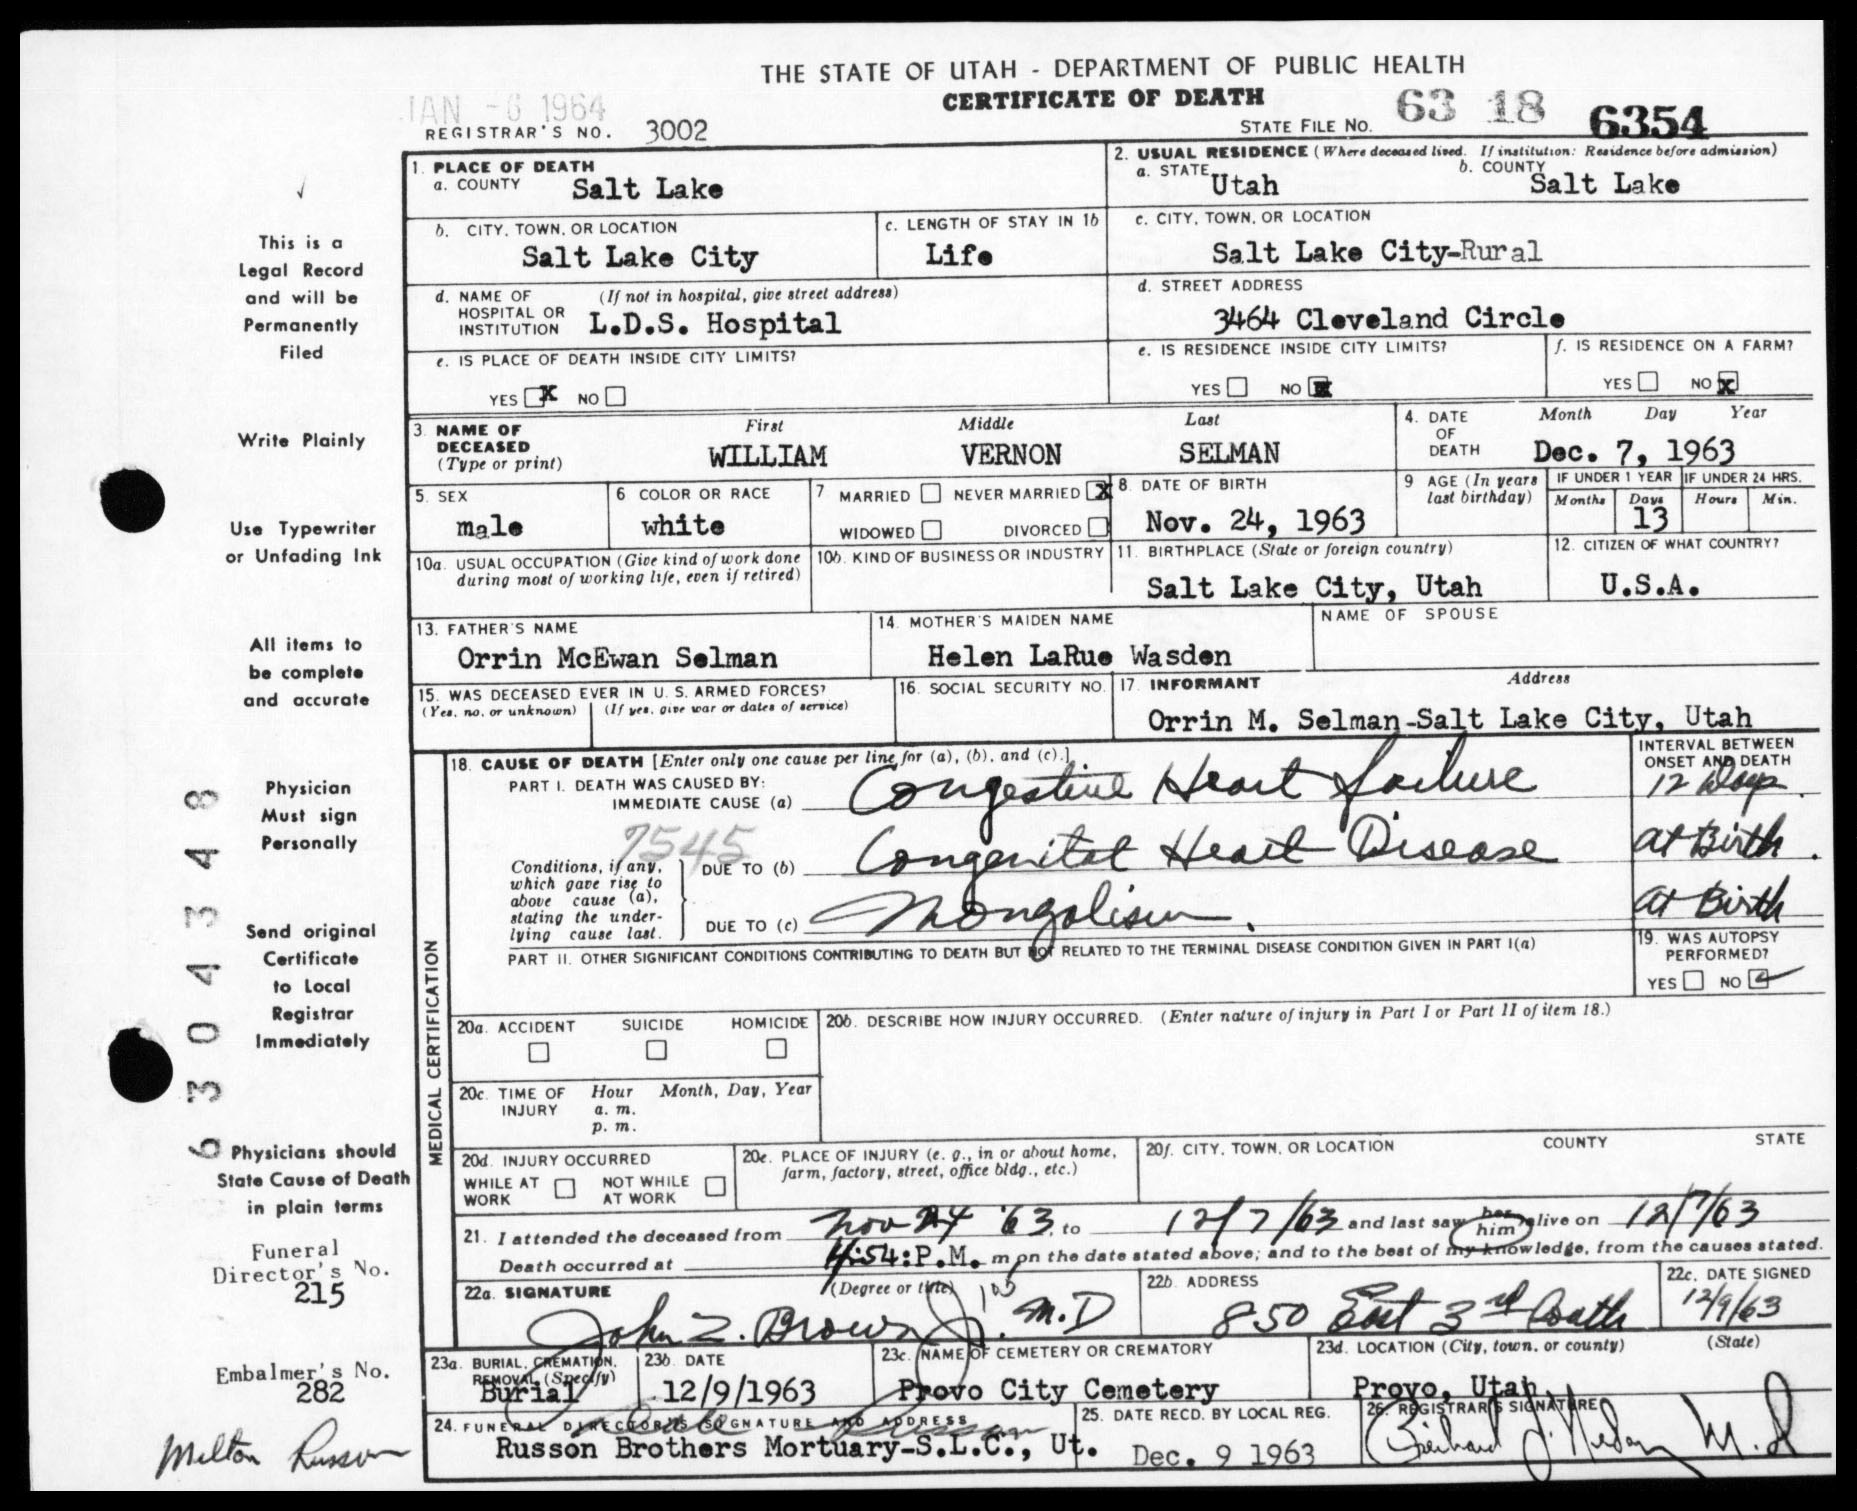 THE STATE OF UTAH - DEPARTMENT OF PUBLIC HEALTH
JAN -6 1964
CERTIFICATE OF DEATH
REGISTRAR'S NO. 3002
STATE FILE NO. 63 18 6354
1. PLACE OF DEATH
a. COUNTY Salt Lake
2. USUAL RESIDENCE (Where deceased lived. If institution: Residence before admission)
a. STATE Utah b. COUNTY Salt Lake
b. CITY, TOWN, OR LOCATION Salt Lake City
c. LENGTH OF STAY IN 1b Life
c. CITY, TOWN, OR LOCATION Salt Lake City-Rural
d. NAME OF HOSPITAL OR INSTITUTION (If not in hospital, give street address) L.D.S. Hospital
d. STREET ADDRESS 3464 Cleveland Circle
e. IS PLACE OF DEATH INSIDE CITY LIMITS?
YES X NO
e. IS RESIDENCE INSIDE CITY LIMITS?
YES NO X
f. IS RESIDENCE ON A FARM?
YES NO X
3. NAME OF DECEASED (Type or print)
First Middle Last
WILLIAM VERNON SELMAN
4. DATE OF DEATH Month Day Year
Dec. 7, 1963
5. SEX male
6 COLOR OR RACE white
7 MARRIED NEVER MARRIED X
WIDOWED DIVORCED
8. DATE OF BIRTH Nov. 24, 1963
9 AGE (In years last birthday)
IF UNDER 1 YEAR Months Days 13
IF UNDER 24 HRS. Hours Min.
10a. USUAL OCCUPATION (Give kind of work done during most of working life, even if retired)
10b. KIND OF BUSINESS OR INDUSTRY
11. BIRTHPLACE (State or foreign country) Salt Lake City, Utah
12. CITIZEN OF WHAT COUNTRY? U.S.A.
13. FATHER'S NAME Orrin McEwan Selman
14. MOTHER'S MAIDEN NAME Helen LaRue Wasden
NAME OF SPOUSE
15. WAS DECEASED EVER IN U. S. ARMED FORCES?
(Yes, no, or unknown) (If yes, give war or dates of service)
16. SOCIAL SECURITY NO.
17. INFORMANT Address
Orrin M. Selman-Salt Lake City, Utah
MEDICAL CERTIFICATION
18. CAUSE OF DEATH [Enter only one cause per line for (a), (b), and (c).]
INTERVAL BETWEEN ONSET AND DEATH
PART I. DEATH WAS CAUSED BY:
IMMEDIATE CAUSE (a) Congestive Heart failure 12 days.
7545
Conditions, if any, which gave rise to above cause (a), stating the underlying cause last.
DUE TO (b) Congenital Heart Disease at Birth.
DUE TO (c) Mongolism. at Birth
PART II. OTHER SIGNIFICANT CONDITIONS CONTRIBUTING TO DEATH BUT NOT RELATED TO THE TERMINAL DISEASE CONDITION GIVEN IN PART I(a)
19. WAS AUTOPSY PERFORMED?
YES NO ✓
20a. ACCIDENT SUICIDE HOMICIDE
20b. DESCRIBE HOW INJURY OCCURRED. (Enter nature of injury in Part I or Part II of item 18.)
20c. TIME OF INJURY Hour a. m. p. m. Month, Day, Year
20d. INJURY OCCURRED
WHILE AT WORK NOT WHILE AT WORK
20e. PLACE OF INJURY (e. g., in or about home, farm, factory, street, office bldg., etc.)
20f. CITY, TOWN, OR LOCATION COUNTY STATE
21. I attended the deceased from Nov 24 '63, to 12/7/63 and last saw her him alive on 12/7/63
Death occurred at 4:54:P.M. m on the date stated above; and to the best of my knowledge, from the causes stated.
22a. SIGNATURE (Degree or title)
John Z. Brown Jr. M.D
22b. ADDRESS 850 East 3rd South
22c. DATE SIGNED 12/9/63
23a. BURIAL, CREMATION, REMOVAL (Specify) Burial
23b. DATE 12/9/1963
23c. NAME OF CEMETERY OR CREMATORY Provo City Cemetery
23d. LOCATION (City, town, or county) (State)
Provo, Utah.
24. FUNERAL DIRECTOR'S SIGNATURE AND ADDRESS
Russon Brothers Mortuary-S.L.C., Ut.
25. DATE RECD. BY LOCAL REG. Dec. 9 1963
26. REGISTRAR'S SIGNATURE
M.D
This is a
Legal Record
and will be
Permanently
Filed
Write Plainly
Use Typewriter
or Unfading Ink
All items to
be complete
and accurate
Physician
Must sign
Personally
Send original
Certificate
to Local
Registrar
Immediately
Physicians should
State Cause of Death
in plain terms
6 3 0 4 3 4 8
Funeral
Director's No.
215
Embalmer's No.
282
Milton Russon